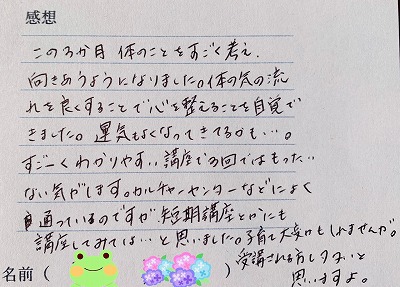 感想
この3か月 体のことをすごく考え、
向きあうようになりました。体の気の流
れを良くすることで心を整えることを自覚で
きました。運気もよくなってきてるかも…。
すごーくわかりやすい講座で3回ではもったい
ない気がします。カルチャーセンターなどによく
通っているのですが短期講座とかにも
講座してみては…と思いました。子育て大変かもしれませんが。
受講される方も多いと
思いますよ。
名前( )